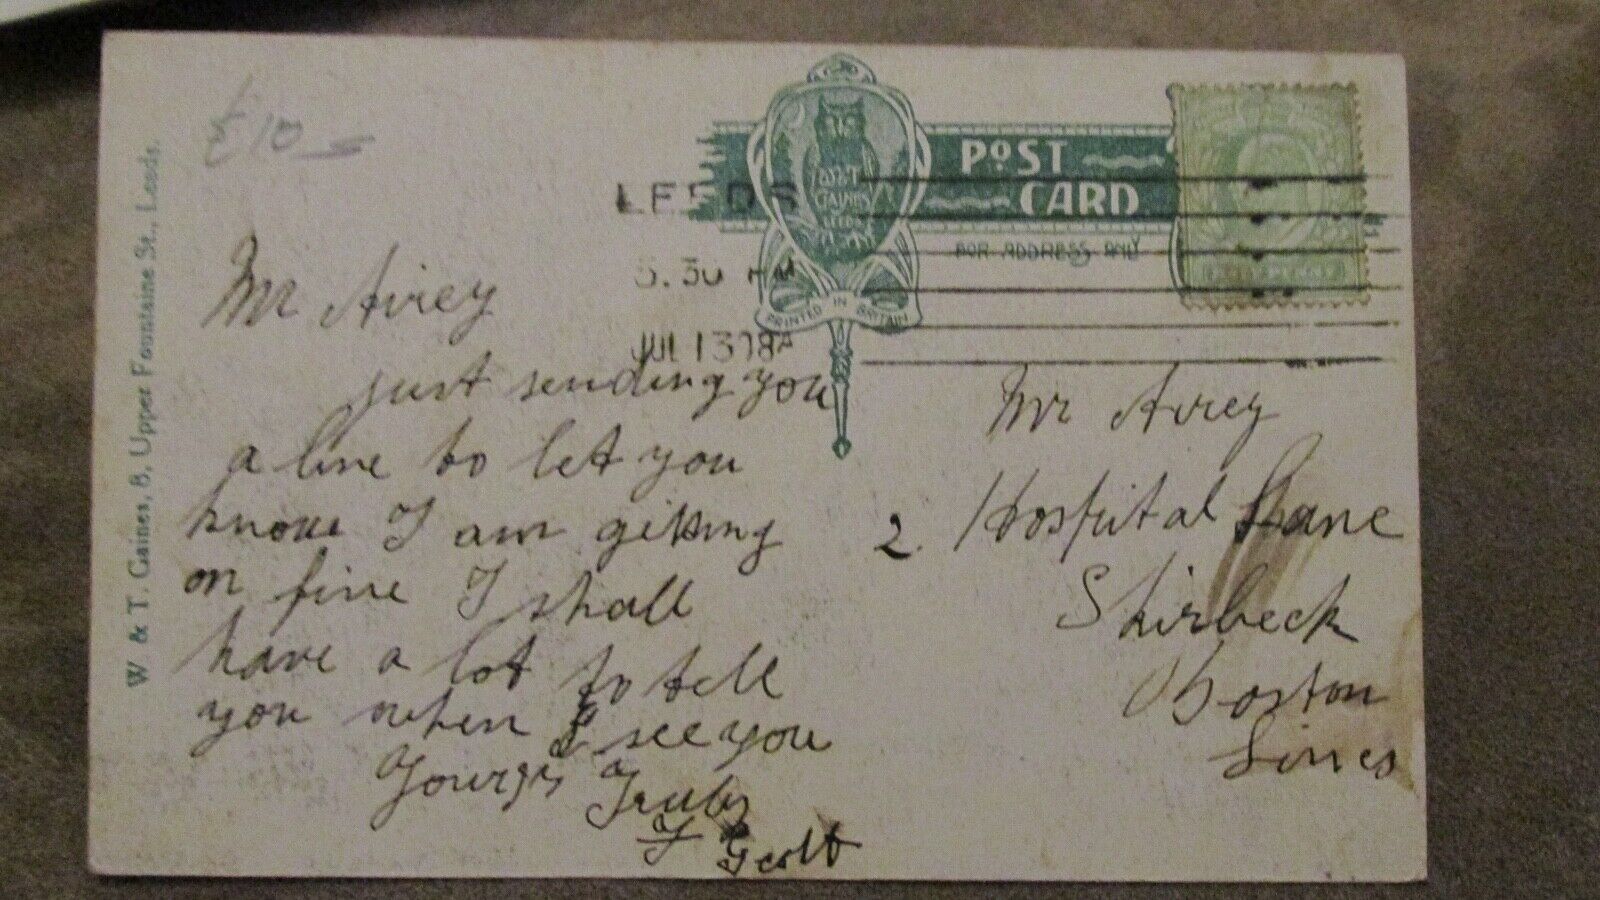 £10 -
W & T. Gaines, 8, Upper Fountaine St., Leeds.
LEEDS
5.30 PM
JUL 13 08
POST
CARD
FOR ADDRESS ONLY
W & T
GAINES
LEEDS
PRINTED IN BRITAIN
HALFPENNY
Mr Airey
just sending you
a line to let you
know I am getting
on fine I shall
have a lot to tell
you when I see you
Yours Truly
F
Mr Airey
2. Hospital Lane
Skirbeck
Boston
Lincs